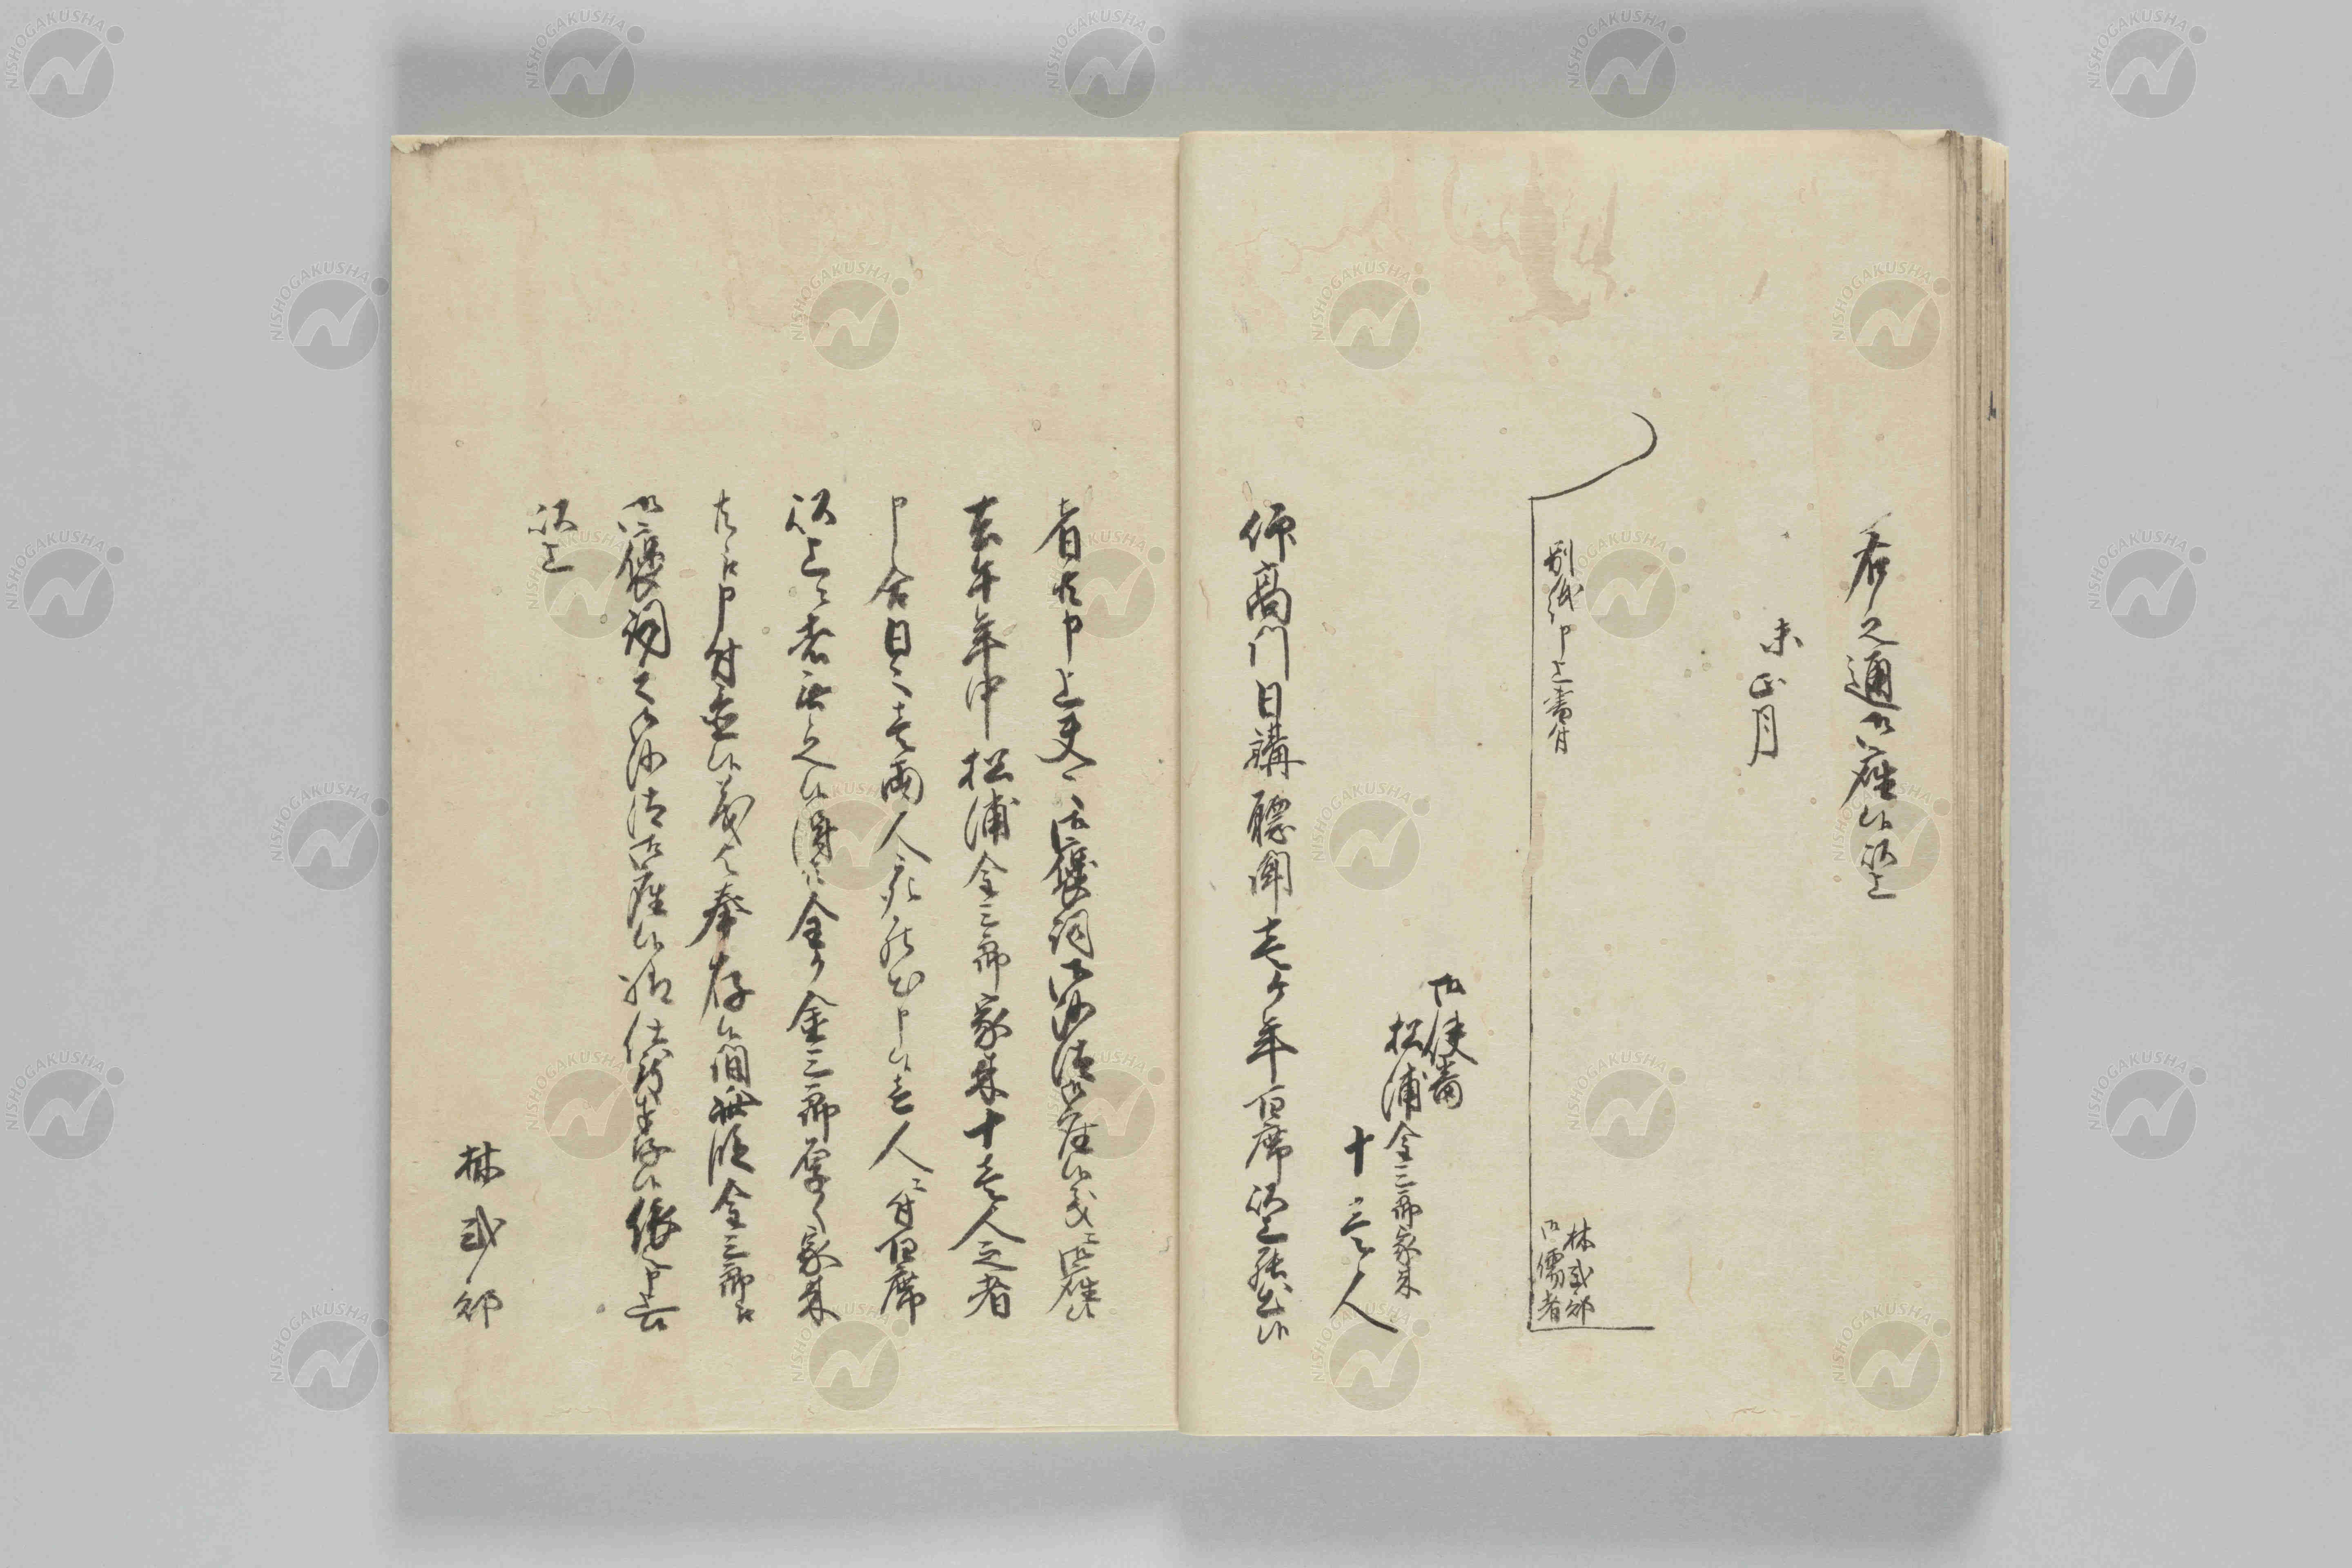 右之通御座候以上
未正月
別紙申上書付
林 式部
御儒者
御使番
松浦金三郎家来
十壱人
仰高門日講聴聞壱ヶ年百席以上罷出候
者共申上 更ニ御褒詞御沙汰御座候義ニ御座候
去午年中松浦金三郎家来十壱人之者
申合日々壱両人宛罷出申候壱人ニ付百席
以上之者無之候得共全ク金三郎厚ク家来
共江申付置候義と奉存候間此段金三郎江
御褒詞之御沙汰御座候様仕度奉存候依之申上候
以上
林 式部
NISHOGAKUSHA